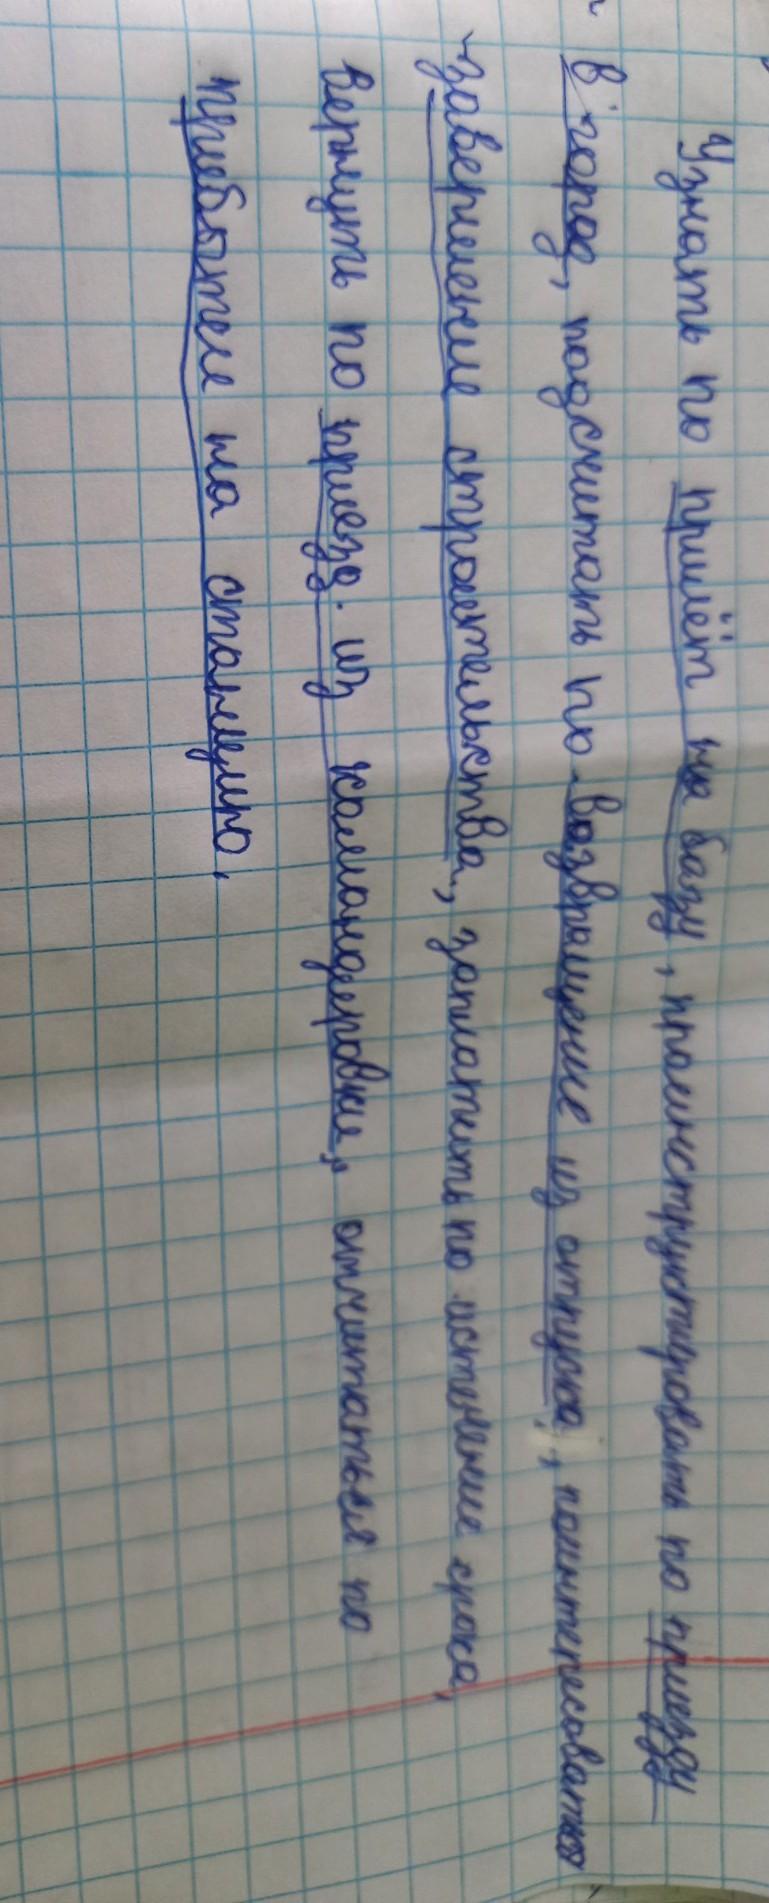 Узнать по прилёт на базу, проинструктировать по приезду
в город, подсчитать по возвращение из отпуска, поинтересоваться
завершение строительства, заплатить по истечение срока,
вернуть по приезд. из командировки, отчитаться по
прибытие на станцию.